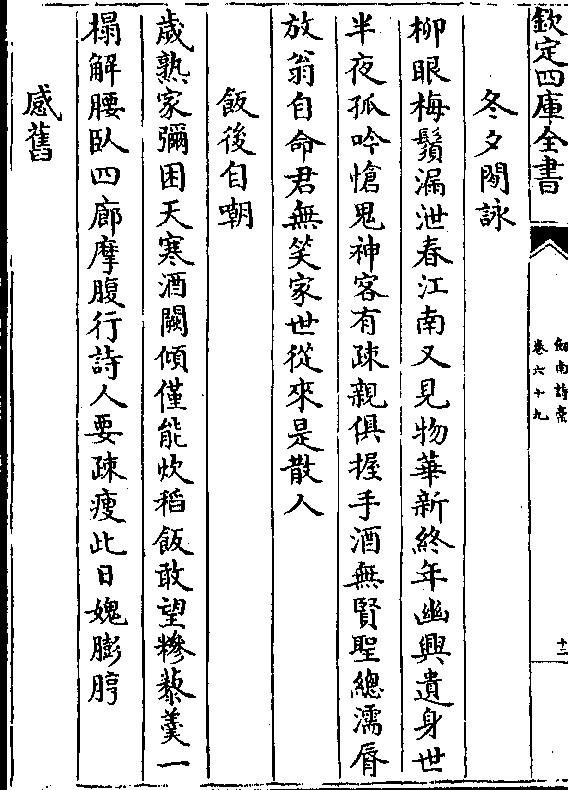 欽定四庫全書
劔南詩稾
卷六十九
十二
冬夕閒詠
柳眼梅鬚漏泄春江南又見物華新終年幽興遺身世
半夜孤吟愴鬼神客有疎親俱握手酒無賢聖總濡脣
放翁自命君無笑家世從來是散人
飯後自嘲
歲熟家彌困天寒酒闕傾僅能炊稻飯敢望糝藜羹一
榻解腰臥四廊摩腹行詩人要疎瘦此日媿膨脝
感舊